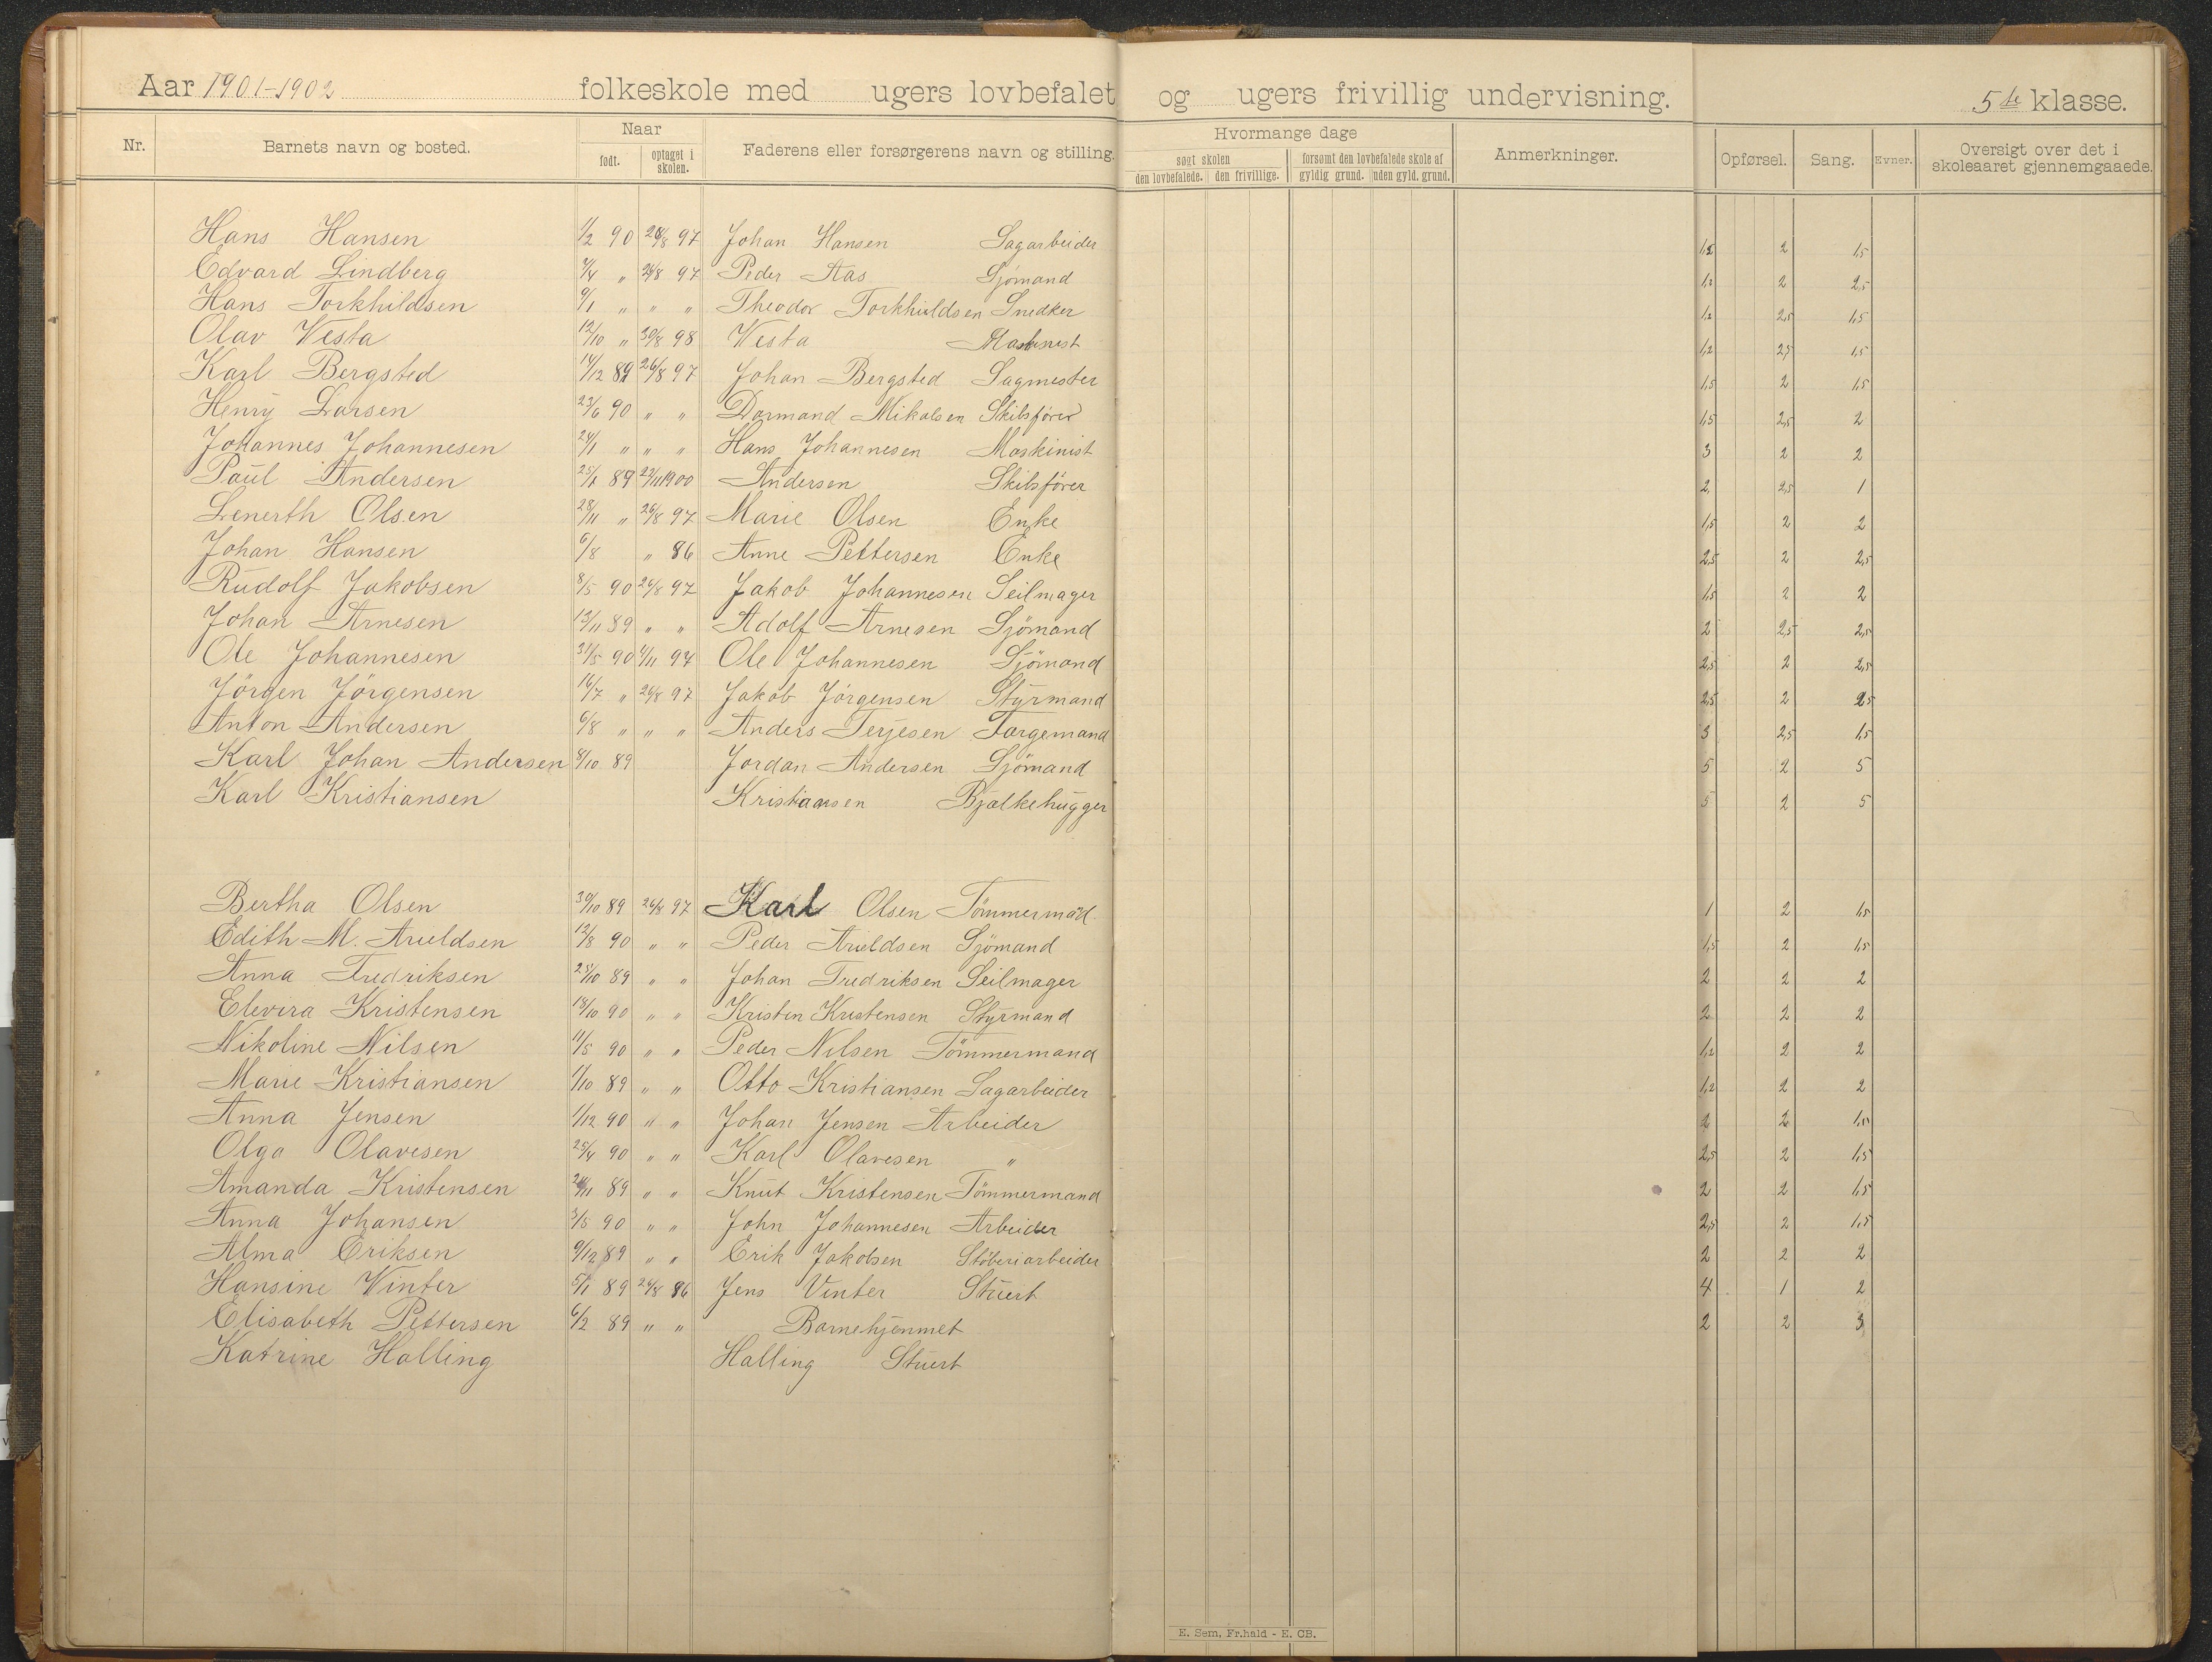 Aar 1901-1902 folkeskole med ugers lovbefalet og ugers frivillig undervisning. 5te klasse.
Nr. Barnets navn og bosted. Naar født. optaget i skolen. Faderens eller forsørgerens navn og stilling. Hvormange dage søgt skolen den lovbefalede. den frivillige. forsømt den lovbefalede skole af gyldig grund. uden gyld. grund. Anmerkninger. Opførsel. Sang. Evner. Oversigt over det i skoleaaret gjennemgaaede.
Hans Hansen 1/2 90 26/8 97 Johan Hansen Sagarbeider 1,5 2 1,5
Edvard Lindberg 4/4 " 26/8 97 Peder Aas Sjömand 1,2 2 2,5
Hans Torkhildsen 9/1 " " " Theodor Torkhildsen Snedker 1,2 2,5 1,5
Olav Vesta 12/10 " 30/8 98 Vesta Maskinist 1,2 2,5 1,5
Karl Bergsted 14/12 89 26/8 97 Johan Bergsted Sagmester 1,5 2 1,5
Henry Larsen 23/6 90 " " Dormand Mikalsen Skibsfører 1,5 2,5 2
Johannes Johannesen 24/1 " " " Hans Johannesen Maskinist 3 2 2
Paul Andersen 89 1900 Andersen Skibsfører 2 2,5 1
Lenerth Olsen 28/11 " 26/8 97 Marie Olsen Enke 1,5 2 2
Johan Hansen 6/8 " 86 Anne Pettersen Enke 2,5 2 2,5
Rudolf Jakobsen 8/5 90 26/8 97 Jakob Johannesen Seilmager 1,5 2 2
Johan Arnesen 13/11 89 " " Adolf Arnesen Sjömand 2 2,5 2,5
Ole Johannesen 31/5 90 Ole Johannesen Sjömand 2,5 2 2,5
Jörgen Jörgensen 16/7 " 26/8 97 Jakob Jörgensen Styrmand 2,5 2 2,5
Anton Andersen 6/8 " " " Anders Terjesen Færgemand 3 2,5 1,5
Karl Johan Andersen 8/10 89 Jordan Andersen Sjömand 5 2 5
Karl Kristiansen Kristiansen Bjælkehugger 5 2 5
Bertha Olsen 30/10 89 26/8 97 Karl Olsen Tömmermand 1 2 1,5
Edith M. Arueldsen 12/8 90 " " Peder Arueldsen Sjömand 1,5 2 1,5
Anna Fredriksen 25/10 89 " " Johan Fredriksen Seilmager 2 2 2
Elevira Kristensen 18/10 90 " " Kristen Kristensen Styrmand 2 2 2
Nikoline Nilsen 11/5 90 " " Peder Nilsen Tömmermand 1,2 2 2
Marie Kristiansen 1/10 89 " " Otto Kristiansen Sagarbeider 1,2 2 2
Anna Jensen 1/12 90 " " Johan Jensen Arbeider 2 2 1,5
Olga Olavesen 25/4 90 " " Karl Olavesen " 2,5 2 1,5
Amanda Kristensen 89 " " Knut Kristensen Tömmermand 2 2 1,5
Anna Johansen 3/5 90 " " John Johannesen Arbeider 2,5 2 1,5
Alma Eriksen 9/12 89 " " Erik Jakobsen Stöberiarbeider 2 2 2
Hansine Vinter 5/1 89 26/8 86 Jens Vinter Stuert 4 1 2
Elisabeth Pettersen 6/2 89 " " Barnehjemmet 2 2 3
Katrine Halling Halling Stuert
E. Sem, Fr.hald - E. CB.